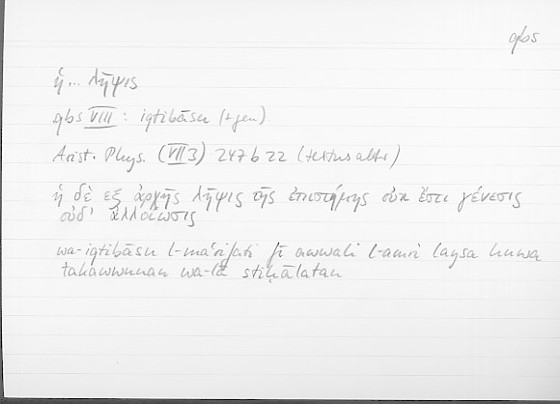 qbs
ἡ... λῆψις
qbs VIII : iqtibāsu (+gen)
Arist. Phys. (VII 3) 247 b 22 (textus alter)
ἡ δὲ ἐξ ἀρχῆς λῆψις τῆς ἐπιστήμης οὐκ ἔστι γένεσις
οὐδ' ἀλλοίωσις
wa-iqtibāsu l-maʿrifati fī awwali l-amri laysa huwa
takawwunan wa-lā stiḥālatan